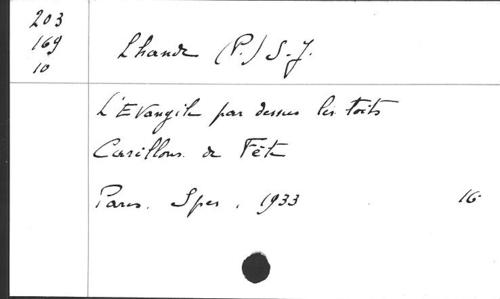 203
169
10
Lhande (P.) S-J.
L'Evangile par dessus les toits
Carillons de Fête
Paris. Spes, 1933 16